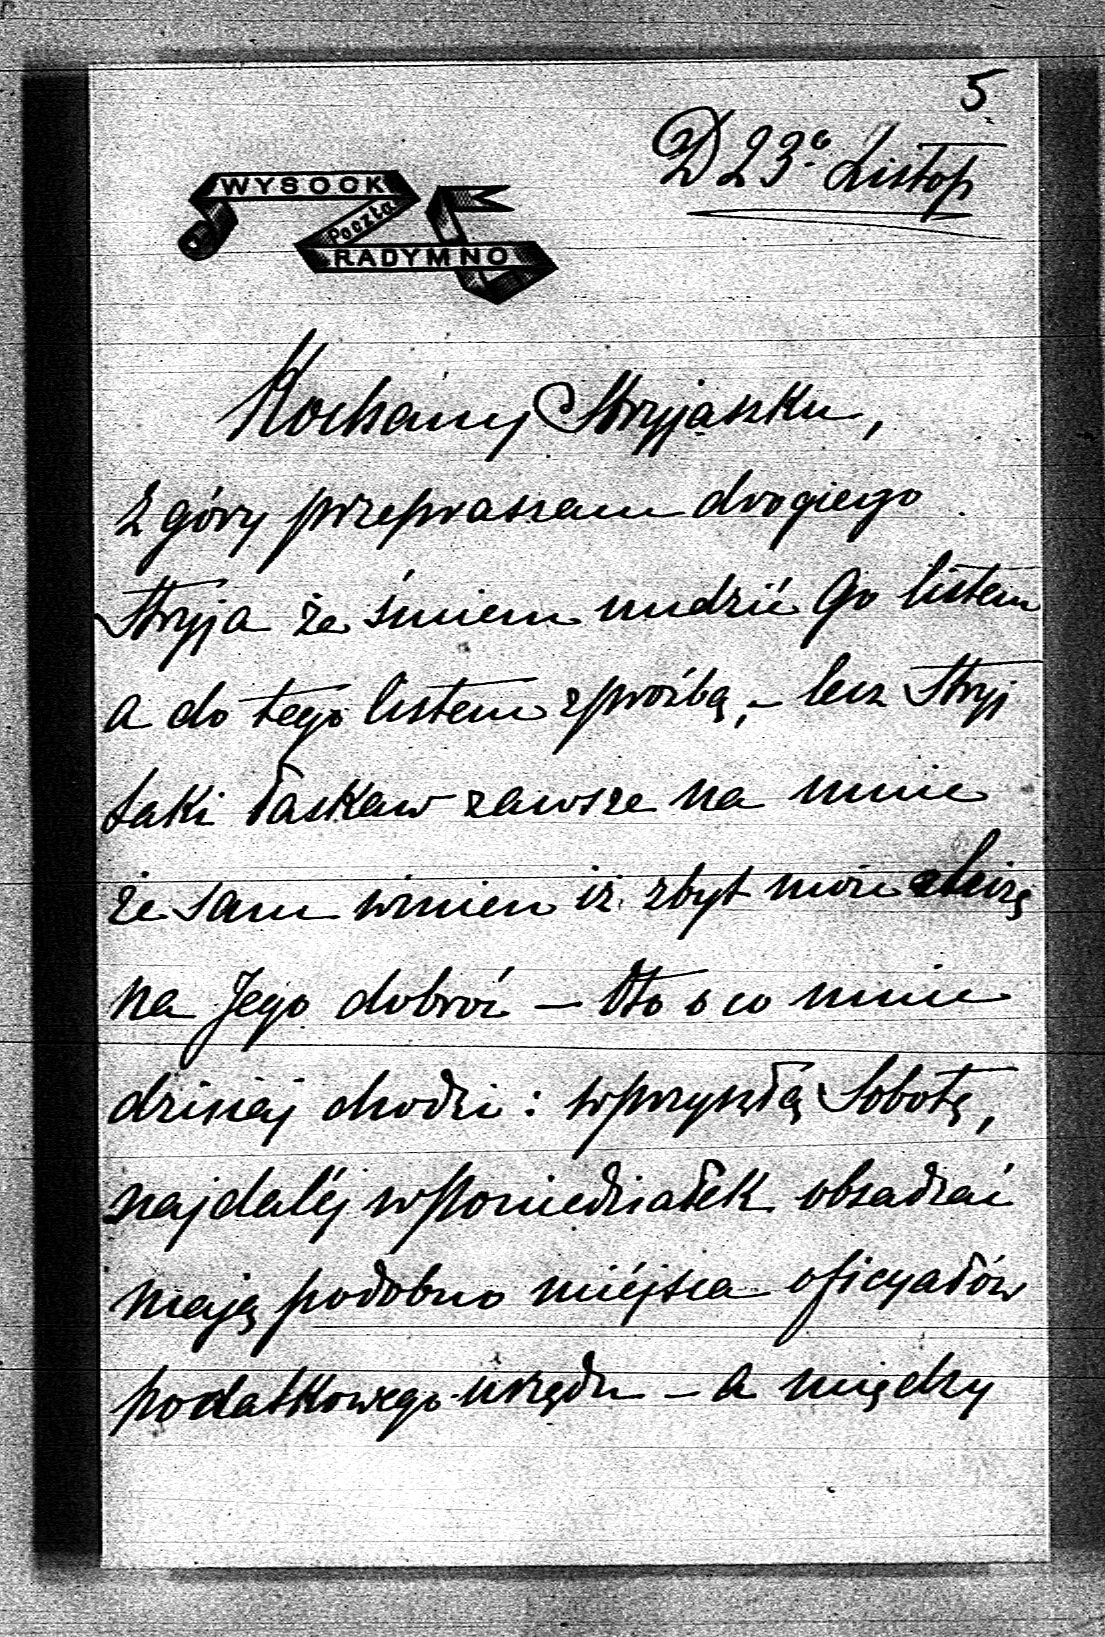 5
D 23º Listop
WYSOCK
Poczta
RADYMNO
Kochany Stryjaszku,
Z góry przepraszam drogiego
Stryja że śmiem nudzić Go listem
a do tego listem z prośbą, – lecz Stryj
taki łaskaw zawsze na mnie
że sam winien iż zbyt może liczę
na Jego dobroć – Oto o co mnie
dzisiaj chodzi: w przyszłą Sobotę,
najdaléj w Poniedziałek obsadzać
mają podobno miéjsca oficyałów
podatkowego urzędu – a między